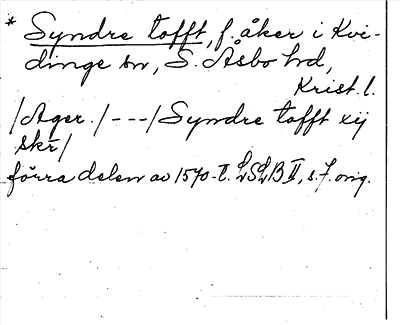 * Syndre tofft, f. åker i Kvi-
dinge sn, S. Åsbo hd,
Krist. l.
/Ager./---/Syndre tofft xij
skr/
förra delen av 1570-t. LSLB II, s. 7. orig.